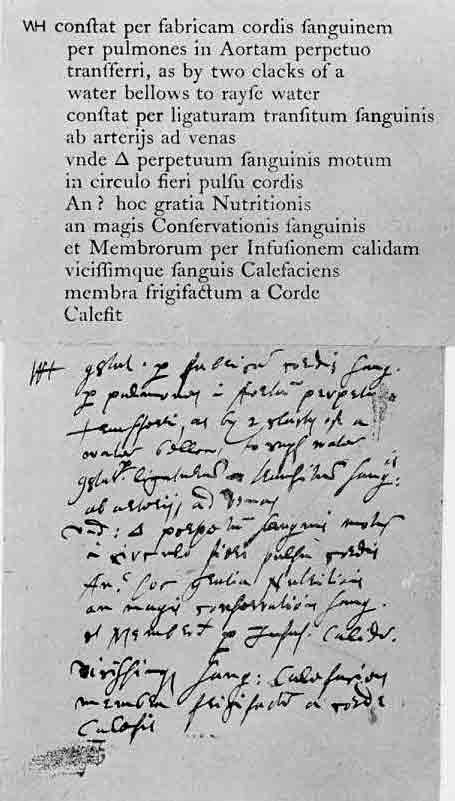 WH conſtat per fabricam cordis ſanguinem
per pulmones in Aortam perpetuo
tranſferri, as by two clacks of a
water bellows to rayſe water
conſtat per ligaturam tranſitum ſanguinis
ab arterijs ad venas
vnde Δ perpetuum ſanguinis motum
in circulo fieri pulſu cordis
An ? hoc gratia Nutritionis
an magis Conſervationis ſanguinis
et Membrorum per Infuſionem calidam
viciſſimque ſanguis Calefaciens
membra frigifactum a Corde
Calefit
WH 9stat · p fabricā cordis sang.
p pulmones ī Aortā perpetuo
transferri, as by 2 clacks of a
water bellows to rayse water
9stat p ligaturā transitū sang:is
ab arterijs ad venas
vnd: Δ perpetuū sanguinis motū
ī circulo fieri pulsu cordis
An? hoc gratia Nutritionis
an magis conservationis sang.
et Membrorū p Infus: Calidā.
vicissimq sang: Calefaciens
membra frigifactū a corde
Calefit